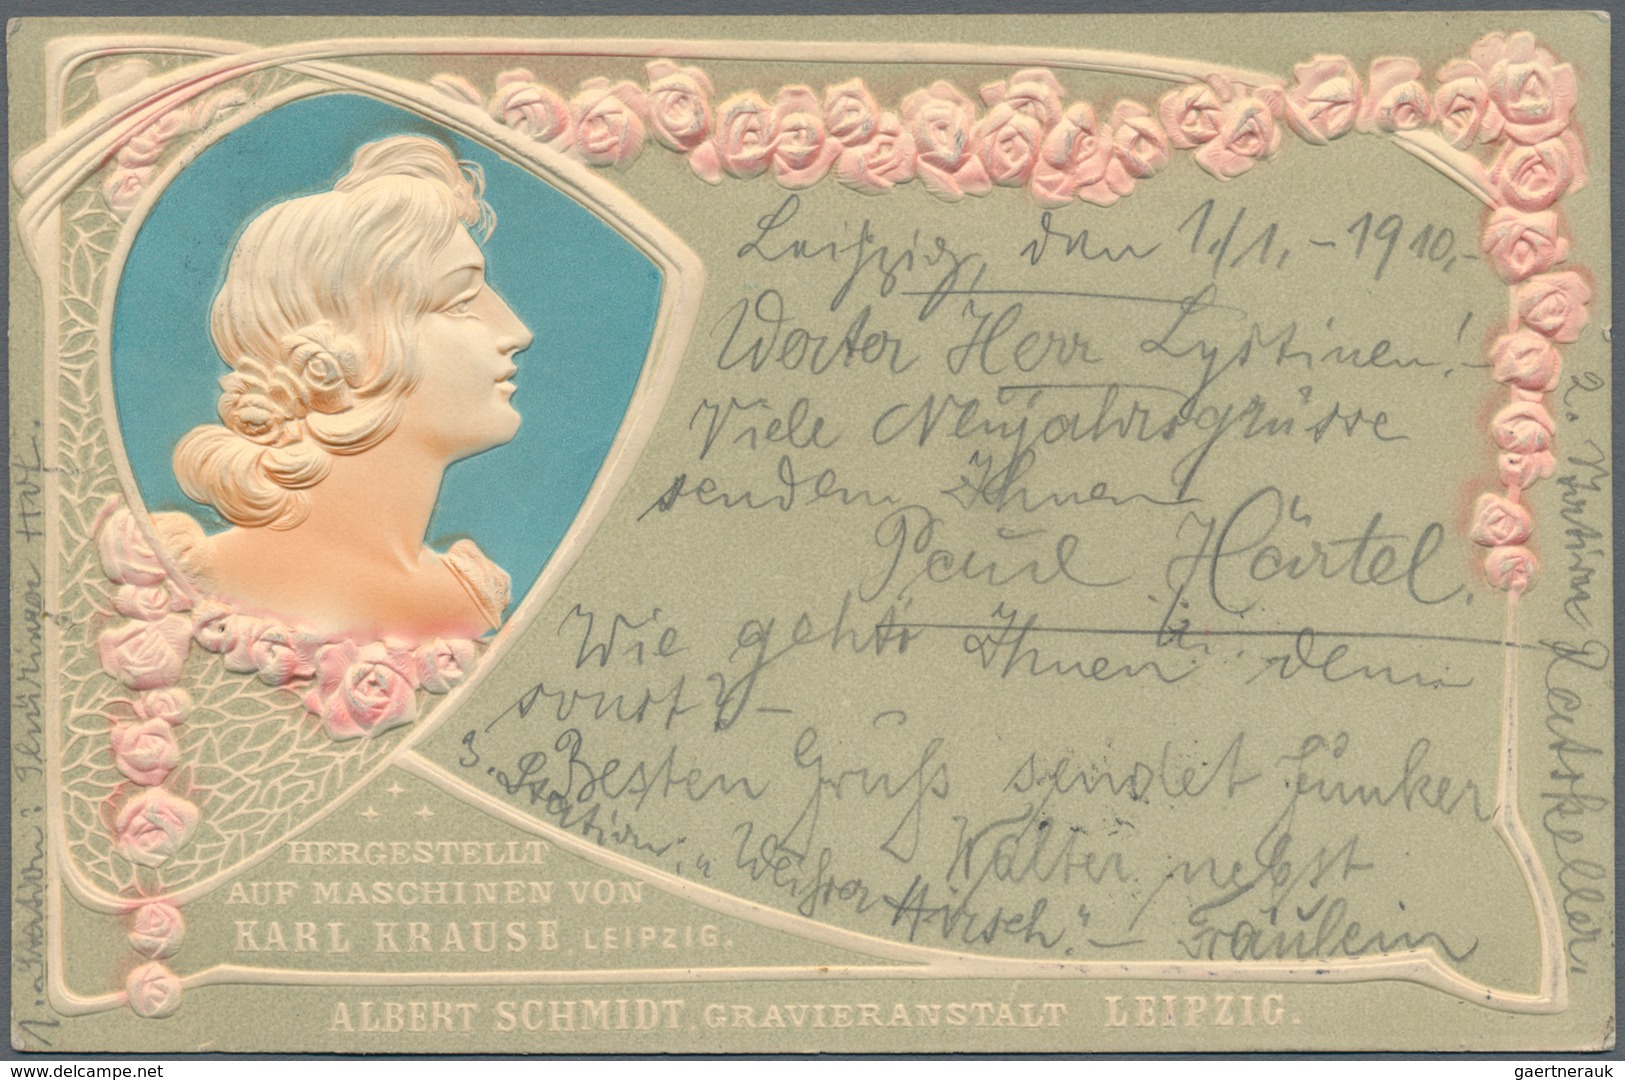 Leipzig, den 1/1.-1910.-
Werter Herr Lystinen!-
Viele Neujahrsgrüsse
senden Ihnen
Paul Härtel.
Wie geht's Ihnen denn
sonst?-
Besten Gruß sendet Junker
Walter nebst
Fräulein
1. Station: Thüringer Hof.
2. Station Ratskeller.
3. Station: "Weißer Hirsch."-
HERGESTELLT
AUF MASCHINEN VON
KARL KRAUSE, LEIPZIG.
ALBERT SCHMIDT, GRAVIERANSTALT LEIPZIG.
www.delcampe.net
gaertnerauk